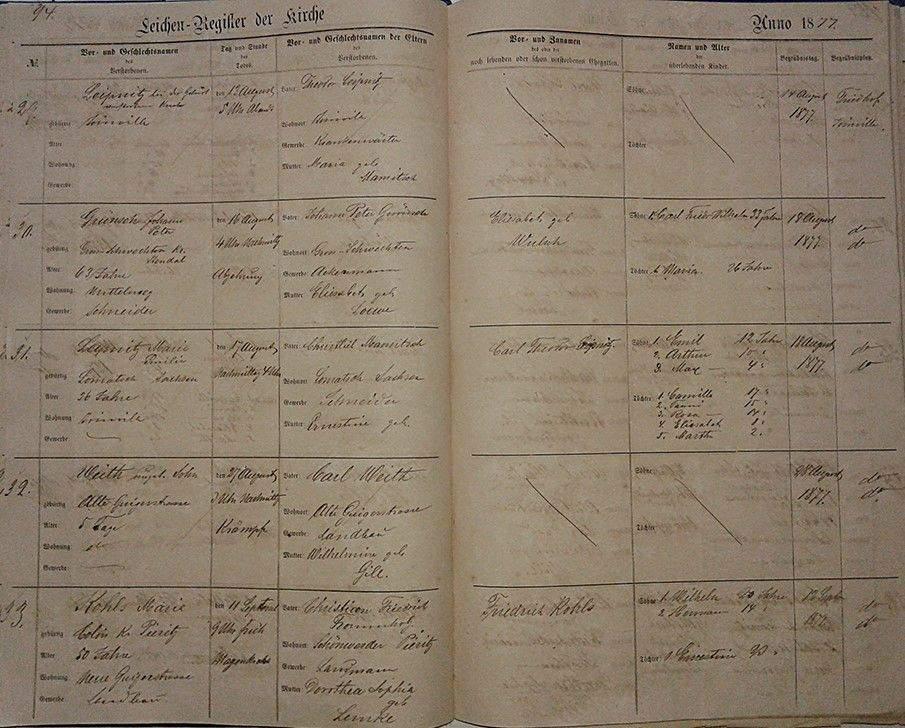 94.
Leichen-Register der Kirche
Anno 1877.
№
Vor- und Geschlechtsnamen des Verstorbenen.
Tag und Stunde des Todes.
Vor- und Geschlechtsnamen der Eltern des Verstorbenen.
Vor- und Zunamen des oder der noch lebenden oder schon verstorbenen Ehegatten.
Namen und Alter der überlebenden Kinder.
Begräbnistag.
Begräbnisplatz.
29.
Leipnitz bei der Geburt
Kirche
gebürtig Joinville
Alter
Wohnung
Gewerbe
den 13 August
5 Uhr Abends
Vater Theodor Leipnitz
Wohnort Joinville
Gewerbe Krankenwärter
Mutter Maria geb
Mamitsch
Söhne
Töchter
14 August
1877.
Friedhof
Joinville.
30.
Johann
Peter
gebürtig Gross Schwechten Kr.
Stendal
Alter 63 Jahre
Wohnung Mittelweg
Gewerbe Schneider
den 16 August
4 Uhr Nachmittg
Abzehrung
Vater Johann Peter
Wohnort Gross-Schwechten
Gewerbe Ackermann
Mutter Elisabeth geb
Loewe
Elisabeth geb
Söhne 1. Carl Friedr Wilhelm 33 Jahre
Töchter 1. Maria 26 Jahre
18 August
1877
do
do
31.
Leipnitz Marie
Emilie
gebürtig Lomatsch Sachsen
Alter 36 Jahre
Wohnung Joinville
Gewerbe —
den 17 August
Nachmittag 4 Uhr
Vater Christlieb Mamitsch
Wohnort Lomatsch Sachsen
Gewerbe Schneider
Mutter Ernestine geb
Carl Theodor Leipnitz
Söhne 1. Emil 12 Jahr
2. Arthur 10 "
3. Max — 4 "
Töchter 1. Camilla 17 "
2. 15 "
3. Rosa —
4. Elisabeth
5. Martha 2 "
18 August
1877.
do
do
32.
Weith ungt. Sohn
gebürtig Alte Guigerstrasse
Alter 5 Tage
Wohnung do
Gewerbe —
den 27 August
Uhr Nachmittg
Krämpfe
Vater Carl Weith
Wohnort Alte Guigerstrasse
Gewerbe Landbau
Mutter Wilhelmine geb
Gill.
Söhne
Töchter
28 August
1877.
do
do
33.
Kohls Marie
gebürtig Colin Kr. Pieritz
Alter 50 Jahre
Wohnung Neue Guigerstrasse
Gewerbe Landbau
den 11 Septemb
9 Uhr früh
Vater Christian Friedrich
Wohnort Schönwerder Pieritz
Gewerbe Landmann
Mutter Dorothea Sophia
geb
Lemke
Friedrich Kohls
Söhne 1. Wilhelm 20 Jahre
2. Herman 14 "
Töchter 1 Ernestine
12 Septb
1877.
do
do